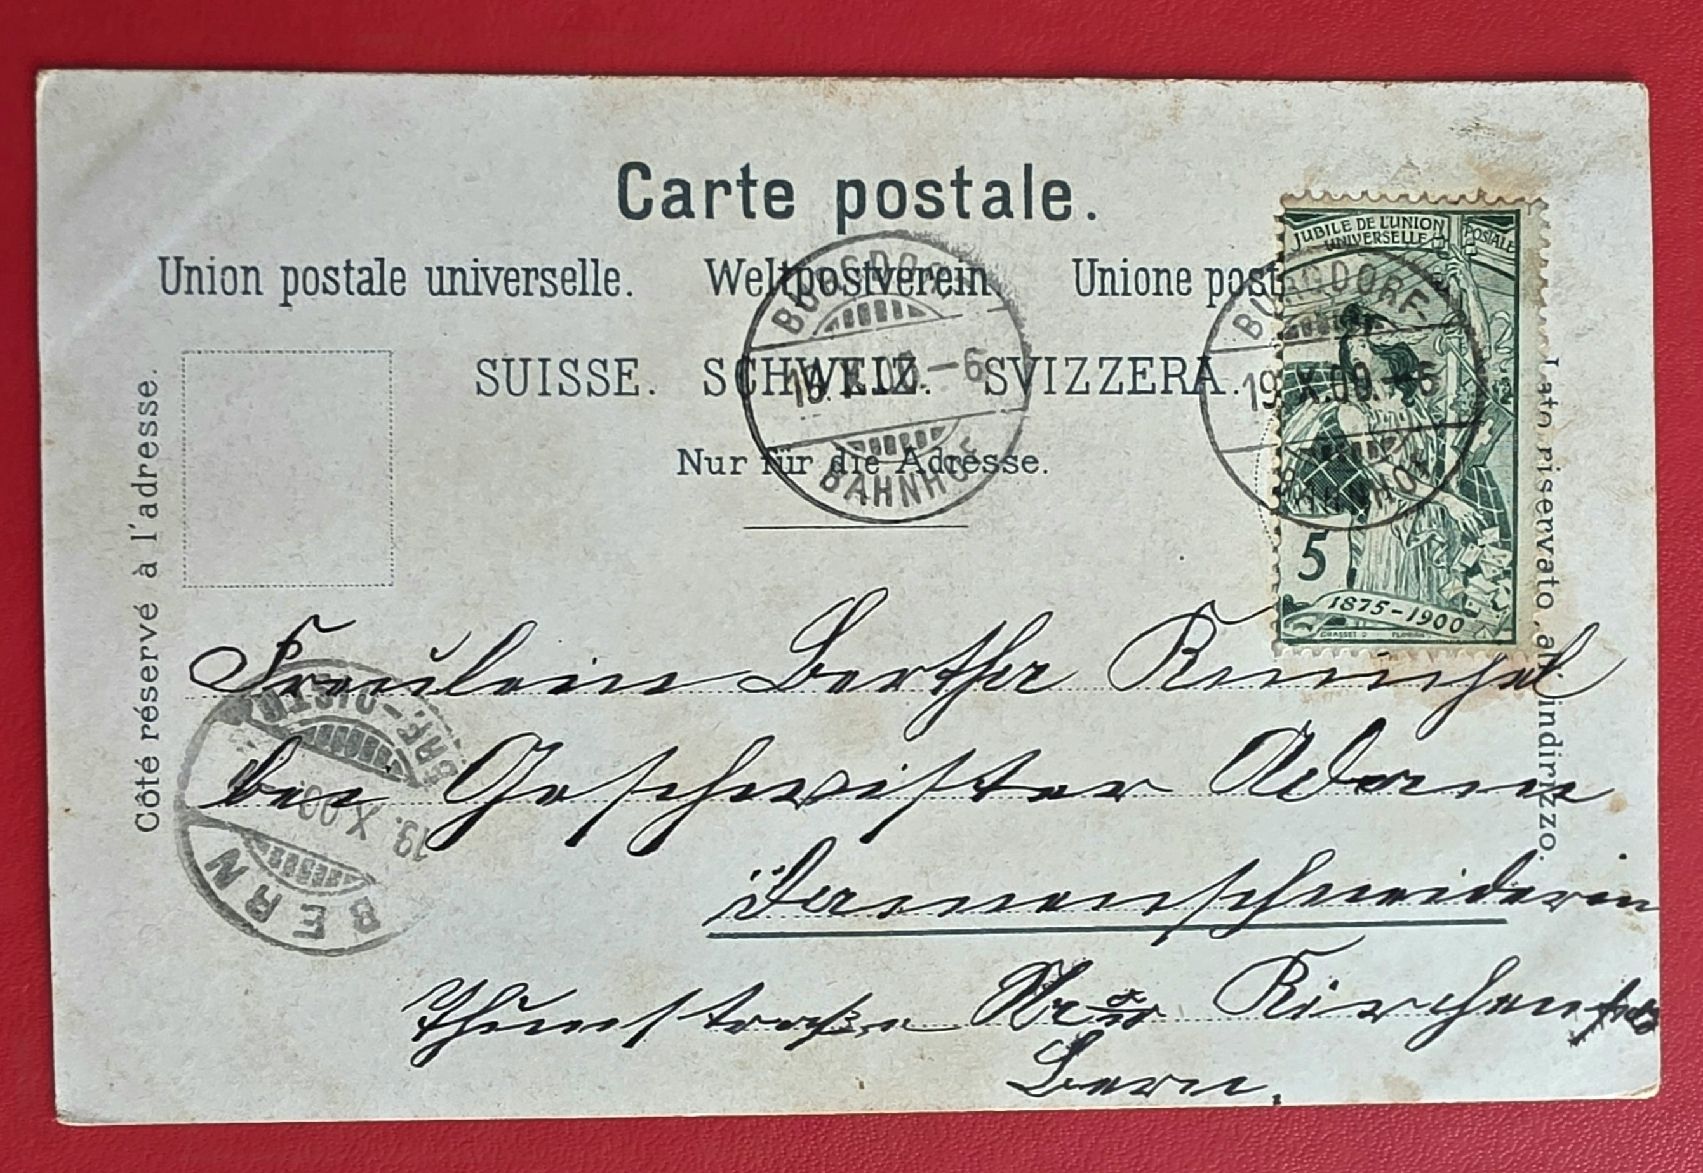 Carte postale.
Union postale universelle. Weltpostverein. Unione post
SUISSE. SCHWEIZ. SVIZZERA.
Nur für die Adresse.
Côté réservé à l'adresse.
Lato riservato all'indirizzo.
JUBILÉ DE L'UNION POSTALE
UNIVERSELLE
5
1875-1900
BURGDORF
19.X.00.-6
BAHNHOF
BURGDORF
19.X.00.-6
BAHNHOF
BERN
19.X.00
BRF.-DISTR.
Fräulein Bertha
bei Geschwister Adam
Damenschneiderin
Thunstraße Nr
Bern.